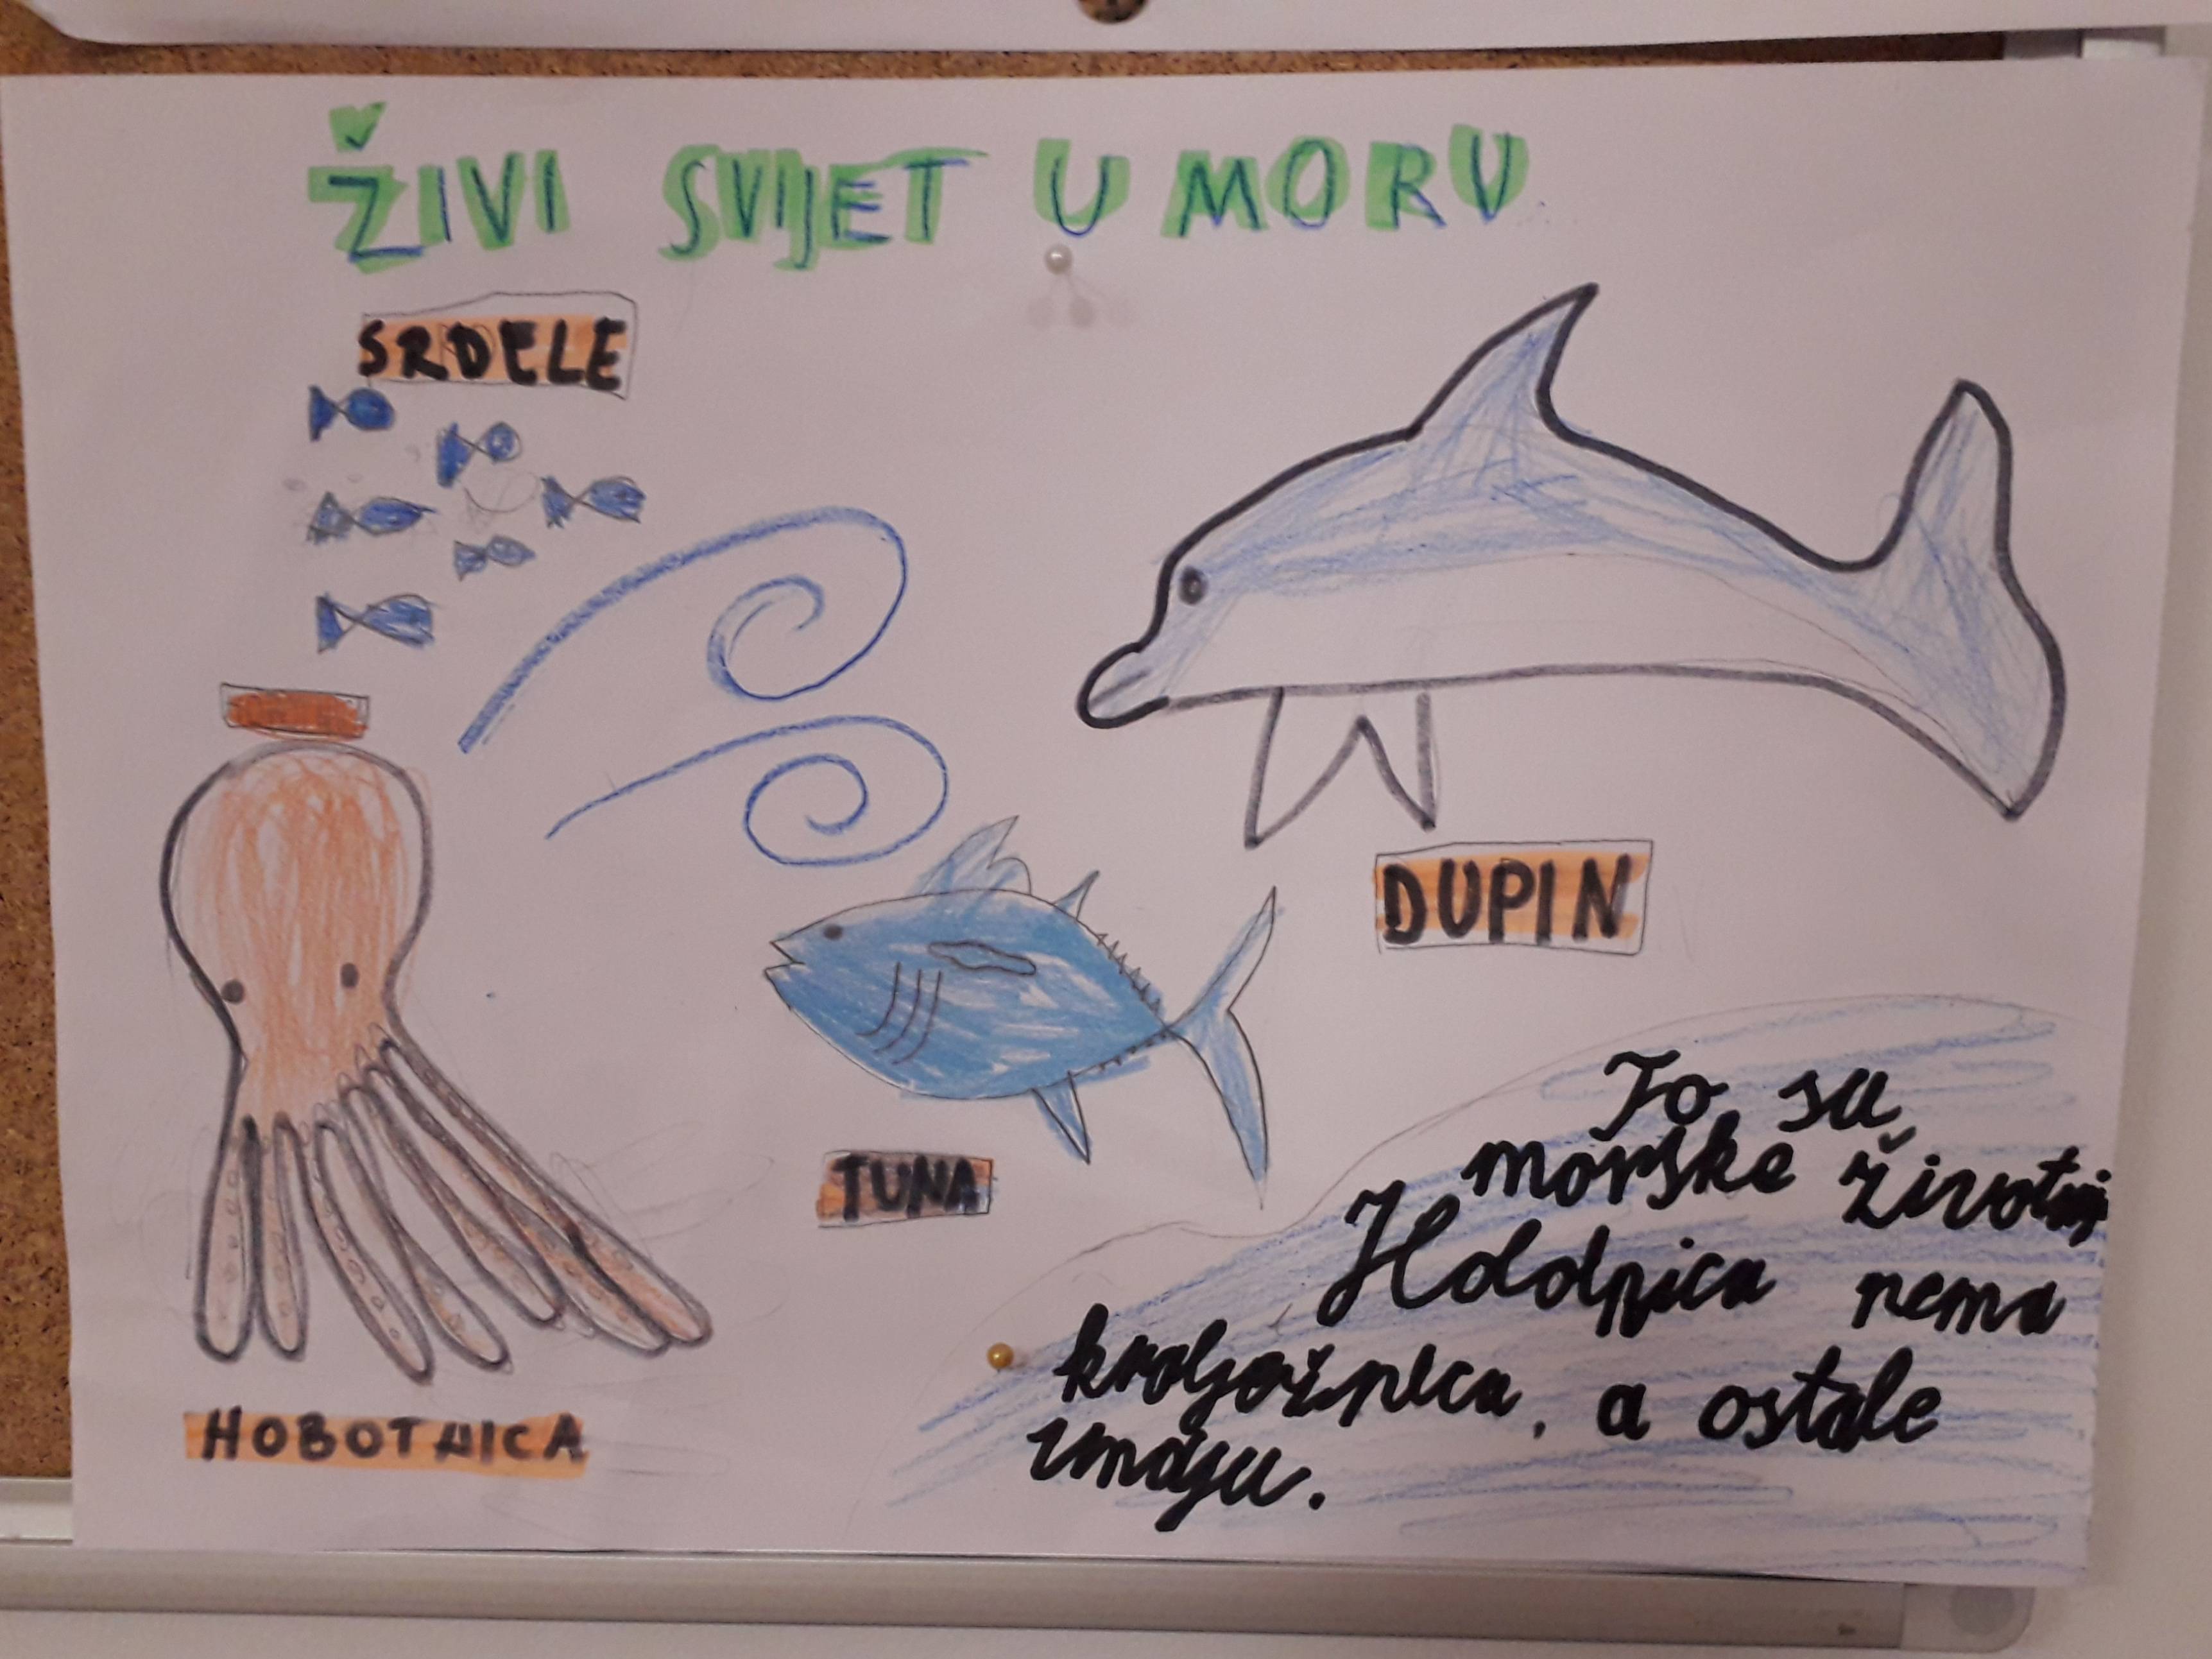 ŽIVI SVIJET U MORU
SRDELE
DUPIN
TUNA
HOBOTNICA
To su
morske životinj
nema
kralježnica, a ostale
imaju.